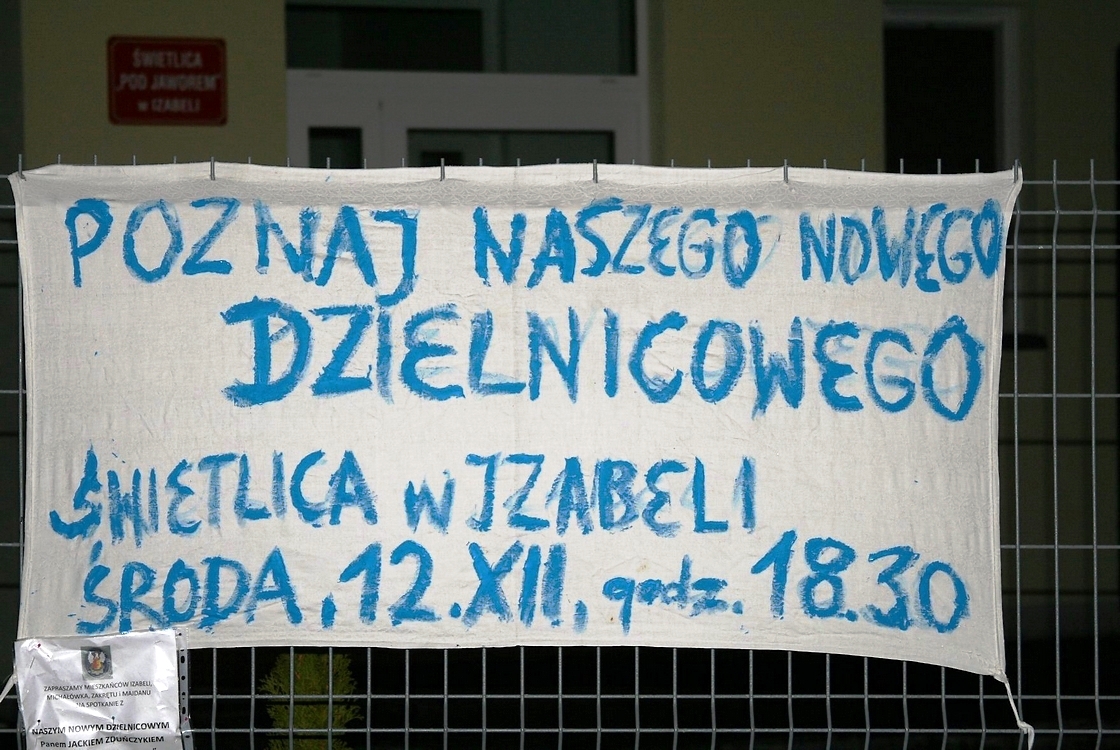 ŚWIETLICA
„POD JAWOREM”
w IZABELI
POZNAJ NASZEGO NOWEGO
DZIELNICOWEGO
ŚWIETLICA W IZABELI
ŚRODA, 12.XII, godz. 18.30
ZAPRASZAMY MIESZKAŃCÓW IZABELI,
MICHAŁÓWKA, ZAKRĘTU I MAJDANU
NA SPOTKANIE Z
NASZYM NOWYM DZIELNICOWYM
Panem JACKIEM ZDUŃCZYKIEM